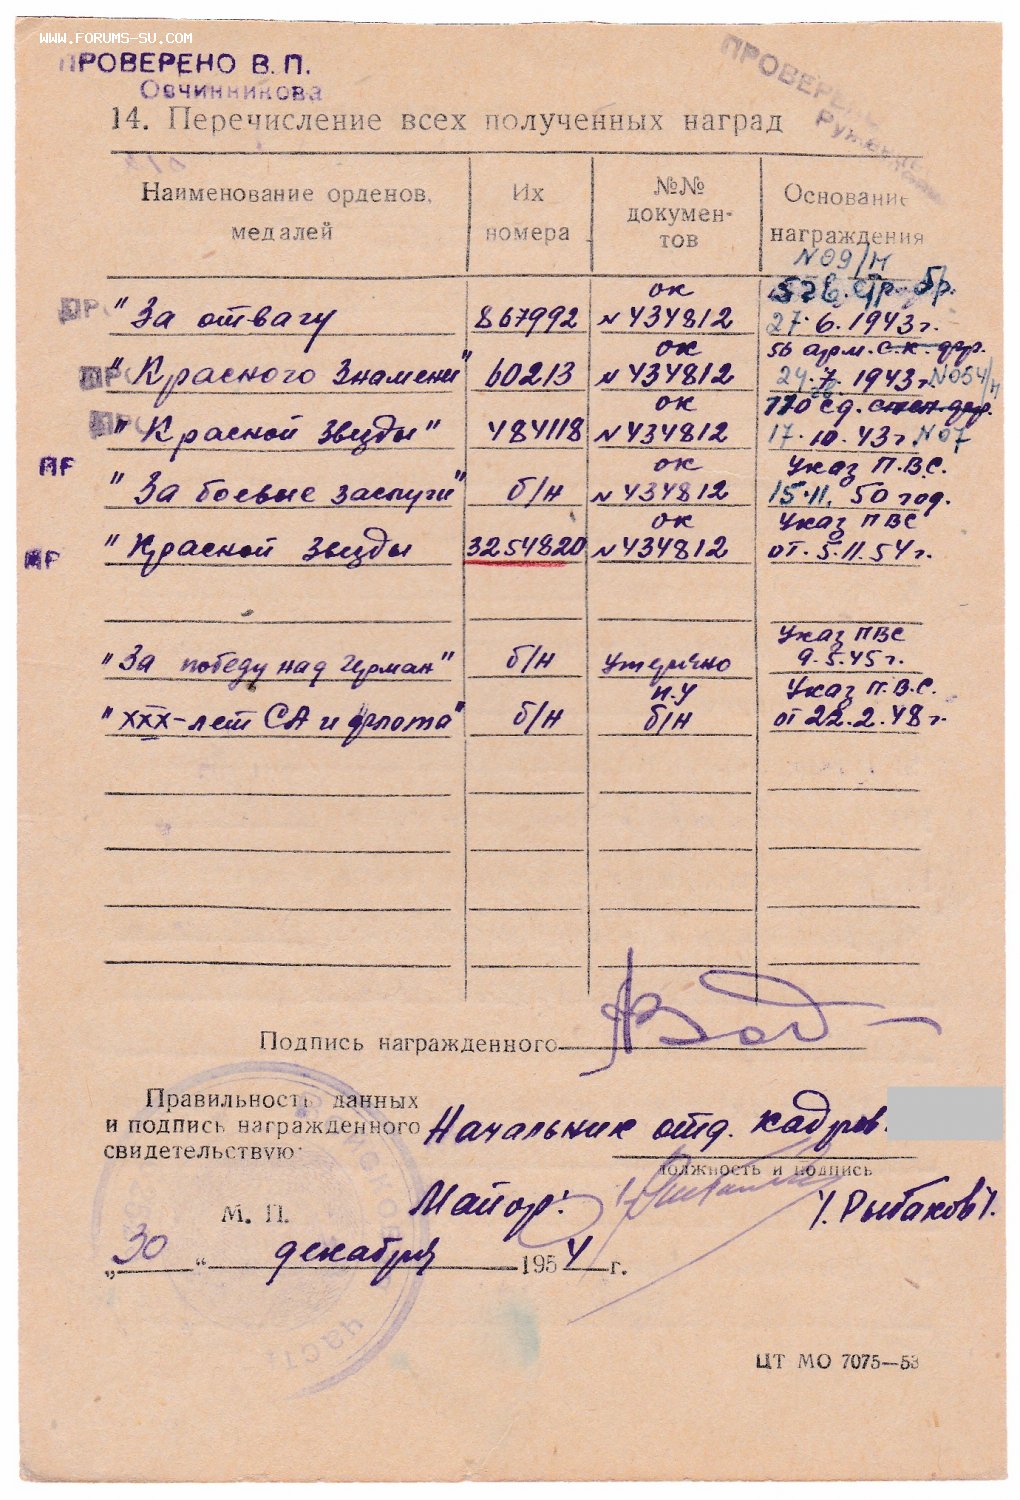 WWW.FORUMS-SU.COM
ПРОВЕРЕНО В. П.
Овчинникова
ПРОВЕРЕНО
14. Перечисление всех полученных наград
Наименование орденов, медалей
Их номера
№№ документов
Основание награждения
N 09/н
"За отвагу 867992 ок N 434812 57 в. стр. бр. 27.6.1943г.
"Красного Знамени" 60213 ок N 434812 56 арм. с.к. 24.7.1943г N054/н
"Красной Звезды" 484118 ок N 434812 770 сд. 17.10.43г. N07
"За боевые заслуги" б/н ок N 434812 Указ П.В.С. 15.11.50 год.
"Красной Звезды 3254820 ок N 434812 Указ ПВС от 5.11.54г.
"За победу над Герман" б/н утеряно Указ ПВС 9.5.45г.
"XXX-лет СА и флота" б/н И.У б/н Указ П.В.С. от 22.2.48г.
ПР
Подпись награжденного
Правильность данных
и подпись награжденного
свидетельствую:
Начальник отд. кадров.
должность и подпись
Майор:
/. Рыбаков /.
М. П.
„30“ декабря 1954 г.
ЦТ МО 7075—53